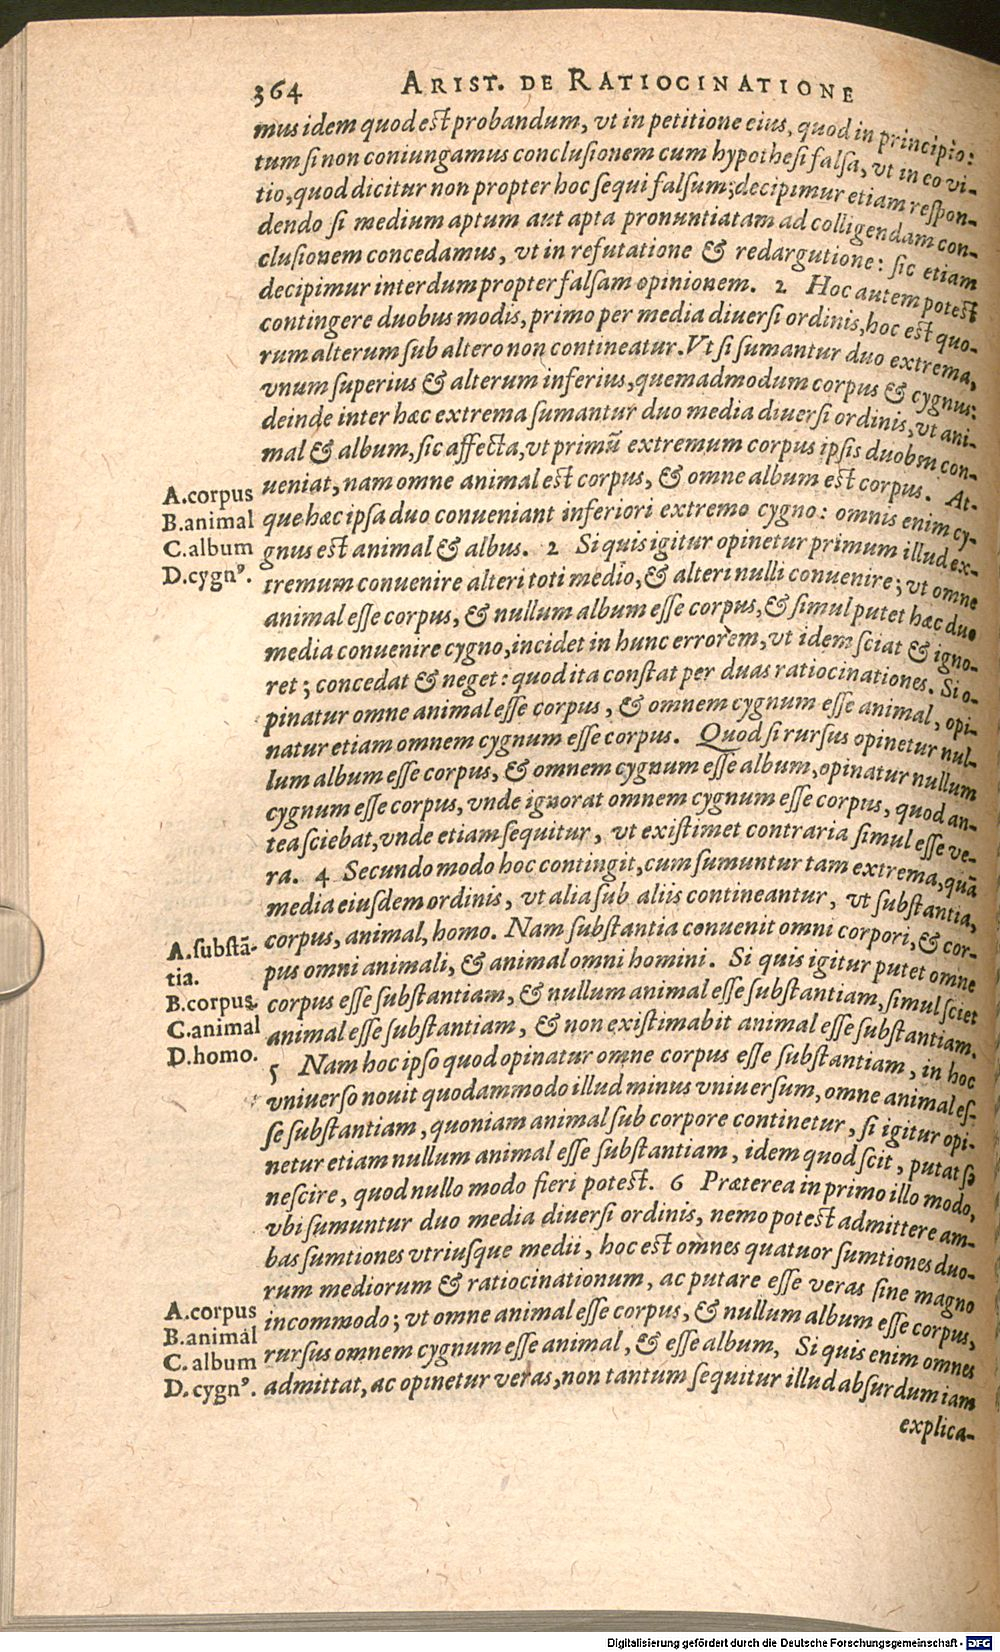 364 ARIST. DE RATIOCINATIONE
mus idem quod est probandum, vt in petitione eius, quod in principio:
tum si non coniungamus conclusionem cum hypothesi falsa, vt in eo vi-
tio, quod dicitur non propter hoc sequi falsum; decipimur etiam respon-
dendo si medium aptum aut apta pronuntiatam ad colligendam con-
clusionem concedamus, vt in refutatione & redargutione: sic etiam
decipimur interdum propter falsam opinionem. 2 Hoc autem potest
contingere duobus modis, primo per media diuersi ordinis, hoc est quo-
rum alterum sub altero non contineatur. Vt si sumantur duo extrema,
vnum superius & alterum inferius, quemadmodum corpus & cygnus:
deinde inter hæc extrema sumantur duo media diuersi ordinis, vt ani-
mal & album, sic affecta, vt primū extremum corpus ipsis duobm con-
ueniat, nam omne animal est corpus, & omne album est corpus. At-
que hæc ipsa duo conueniant inferiori extremo cygno: omnis enim cy-
gnus est animal & albus. 2 Si quis igitur opinetur primum illud ex-
tremum conuenire alteri toti medio, & alteri nulli conuenire; vt omne
animal esse corpus, & nullum album esse corpus, & simul putet hæc duo
media conuenire cygno, incidet in hunc errorem, vt idem sciat & igno-
ret; concedat & neget: quod ita constat per duas ratiocinationes. Si o-
pinatur omne animal esse corpus, & omnem cygnum esse animal, opi-
natur etiam omnem cygnum esse corpus. Quod si rursus opinetur nul-
lum album esse corpus, & omnem cygnum esse album, opinatur nullum
cygnum esse corpus, vnde ignorat omnem cygnum esse corpus, quod an-
tea sciebat, vnde etiam sequitur, vt existimet contraria simul esse ve-
ra. 4 Secundo modo hoc contingit, cum sumuntur tam extrema, quā
media eiusdem ordinis, vt alia sub aliis contineantur, vt substantia,
corpus, animal, homo. Nam substantia conuenit omni corpori, & cor-
pus omni animali, & animal omni homini. Si quis igitur putet omne
corpus esse substantiam, & nullum animal esse substantiam, simul sciet
animal esse substantiam, & non existimabit animal esse substantiam.
5 Nam hoc ipso quod opinatur omne corpus esse substantiam, in hoc
vniuerso nouit quodammodo illud minus vniuersum, omne animal es-
se substantiam, quoniam animal sub corpore continetur, si igitur opi-
netur etiam nullum animal esse substantiam, idem quod scit, putat se
nescire, quod nullo modo fieri potest. 6 Præterea in primo illo modo,
vbi sumuntur duo media diuersi ordinis, nemo potest admittere am-
bas sumtiones vtriusque medii, hoc est omnes quatuor sumtiones duo-
rum mediorum & ratiocinationum, ac putare esse veras sine magno
incommodo; vt omne animal esse corpus, & nullum album esse corpus,
rursus omnem cygnum esse animal, & esse album, Si quis enim omnes
admittat, ac opinetur veras, non tantum sequitur illud absurdum iam
explica-
A.corpus
B.animal
C.album
D.cygnꝰ.
A.substā-
tia.
B.corpus.
C.animal
D.homo.
A.corpus
B.animal
C.album
D.cygnꝰ.
Digitalisierung gefördert durch die Deutsche Forschungsgemeinschaft - DFG